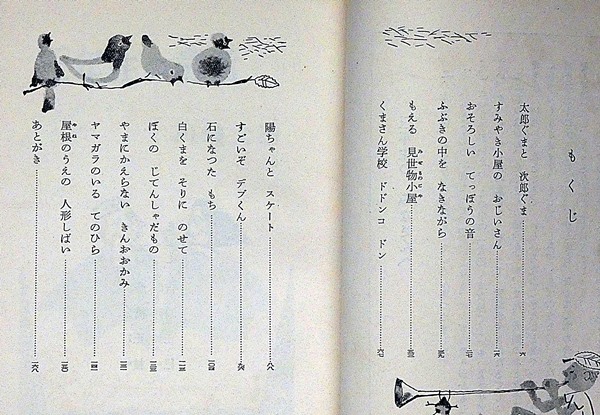 もくじ
太郎ぐまと 次郎ぐま
すみやき小屋の おじいさん
おそろしい てっぽうの音
ふぶきの中を なきながら
もえる 見世物小屋
みせものごや
くまさん学校 ドドンコ ドン
陽ちゃんと スケート
すごいぞ デブくん
石になった もち
白くまを そりに のせて
ぼくの じてんしゃだもの
やまにかえらない きんおおかみ
ヤマガラのいる てのひら
屋根のうえの 人形しばい
やね
あとがき